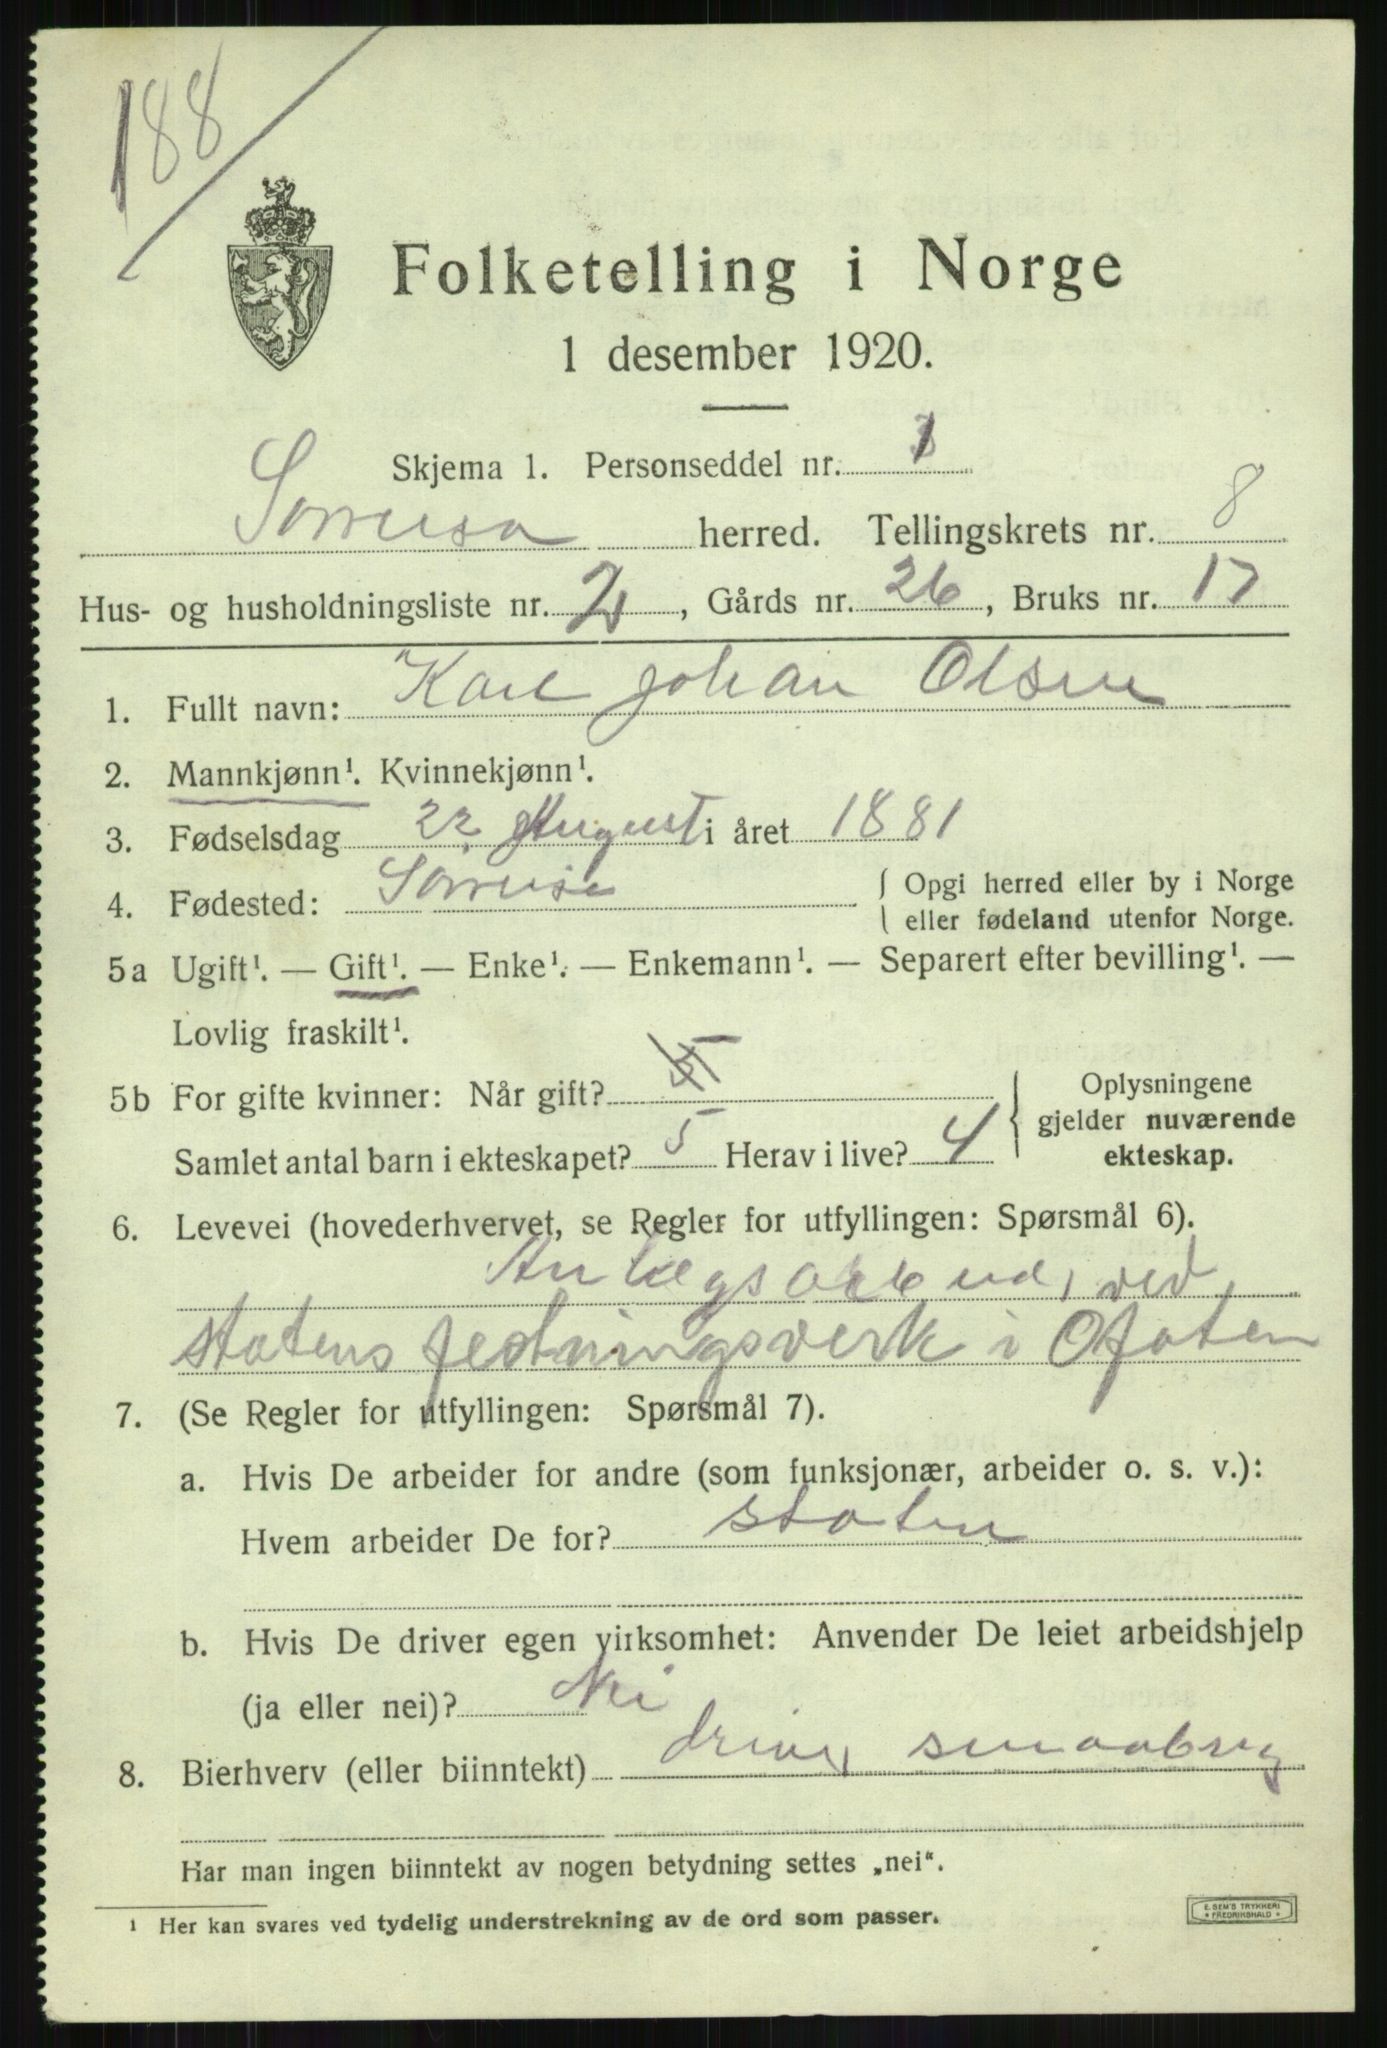 188
Folketelling i Norge
1 desember 1920.
Skjema 1. Personseddel nr. 1
Sørreisa herred. Tellingskrets nr. 8
Hus- og husholdningsliste nr. 2, Gårds nr. 26, Bruks nr. 17
1. Fullt navn: Karl Johan Olsen
2. Mannkjønn¹. Kvinnekjønn¹.
3. Fødselsdag 22 August i året 1881
4. Fødested: Sørreisa { Opgi herred eller by i Norge
eller fødeland utenfor Norge.
5a Ugift¹. — Gift¹. — Enke¹. — Enkemann¹. — Separert efter bevilling¹. —
Lovlig fraskilt¹.
5b For gifte kvinner: Når gift?
Samlet antal barn i ekteskapet? 5 Herav i live? 4 { Oplysningene
gjelder nuværende
ekteskap.
6. Levevei (hovederhvervet, se Regler for utfyllingen: Spørsmål 6).
Anlægsarbeid, ved
statens festningsverk i Ofoten
7. (Se Regler for utfyllingen: Spørsmål 7).
a. Hvis De arbeider for andre (som funksjonær, arbeider o. s. v.):
Hvem arbeider De for? staten
b. Hvis De driver egen virksomhet: Anvender De leiet arbeidshjelp
(ja eller nei)? Nei
8. Bierhverv (eller biinntekt) driver smaabrug
Har man ingen biinntekt av nogen betydning settes „nei“.
¹ Her kan svares ved tydelig understrekning av de ord som passer.
E. SEM'S TRYKKERI
* FREDRIKSHALD *